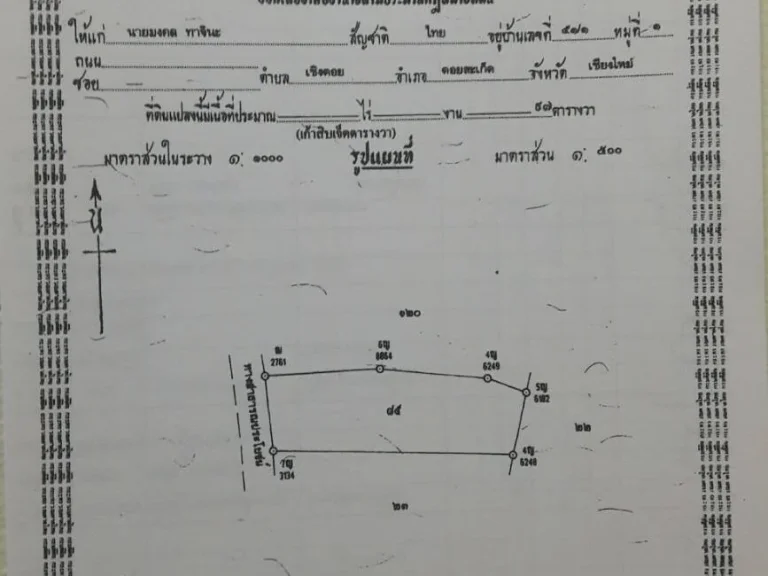 ให้แก่ นายมงคล ทาจินะ สัญชาติ ไทย อยู่บ้านเลขที่ หมู่ที่ ๑
ถนน
ซอย ตำบล เชิงดอย อำเภอ ดอยสะเก็ด จังหวัด เชียงใหม่
ที่ดินแปลงนี้มีเนื้อที่ประมาณ ไร่ งาน ๙๗ ตารางวา
(เก้าสิบเจ็ดตารางวา)
มาตราส่วนในระวาง ๑: ๑๐๐๐ รูปแผนที่ มาตราส่วน ๑: ๕๐๐
น
๑๒๐
2761
6ญ
8064
4ญ
6249
5ญ
6182
๘๕
๒๒
ทางสาธารณประโยชน์
7ญ
3134
4ญ
6248
๒๓